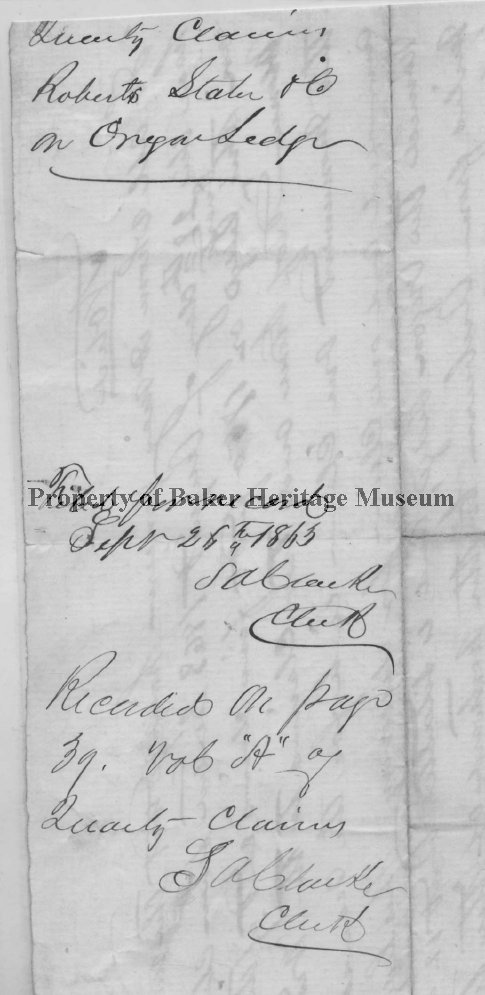 Quartz Claims
Roberts Slater & Co
on Oregon Ledge
Filed for record
Property of Baker Heritage Museum
Sept 26th 1863
S A Clarke
Clerk
Recorded on page
39. Vol "A" of
Quartz Claims
S A Clarke
Clerk